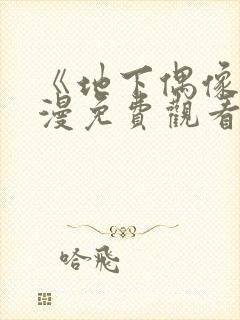 《地下偶像
漫免費觀看
哈飛